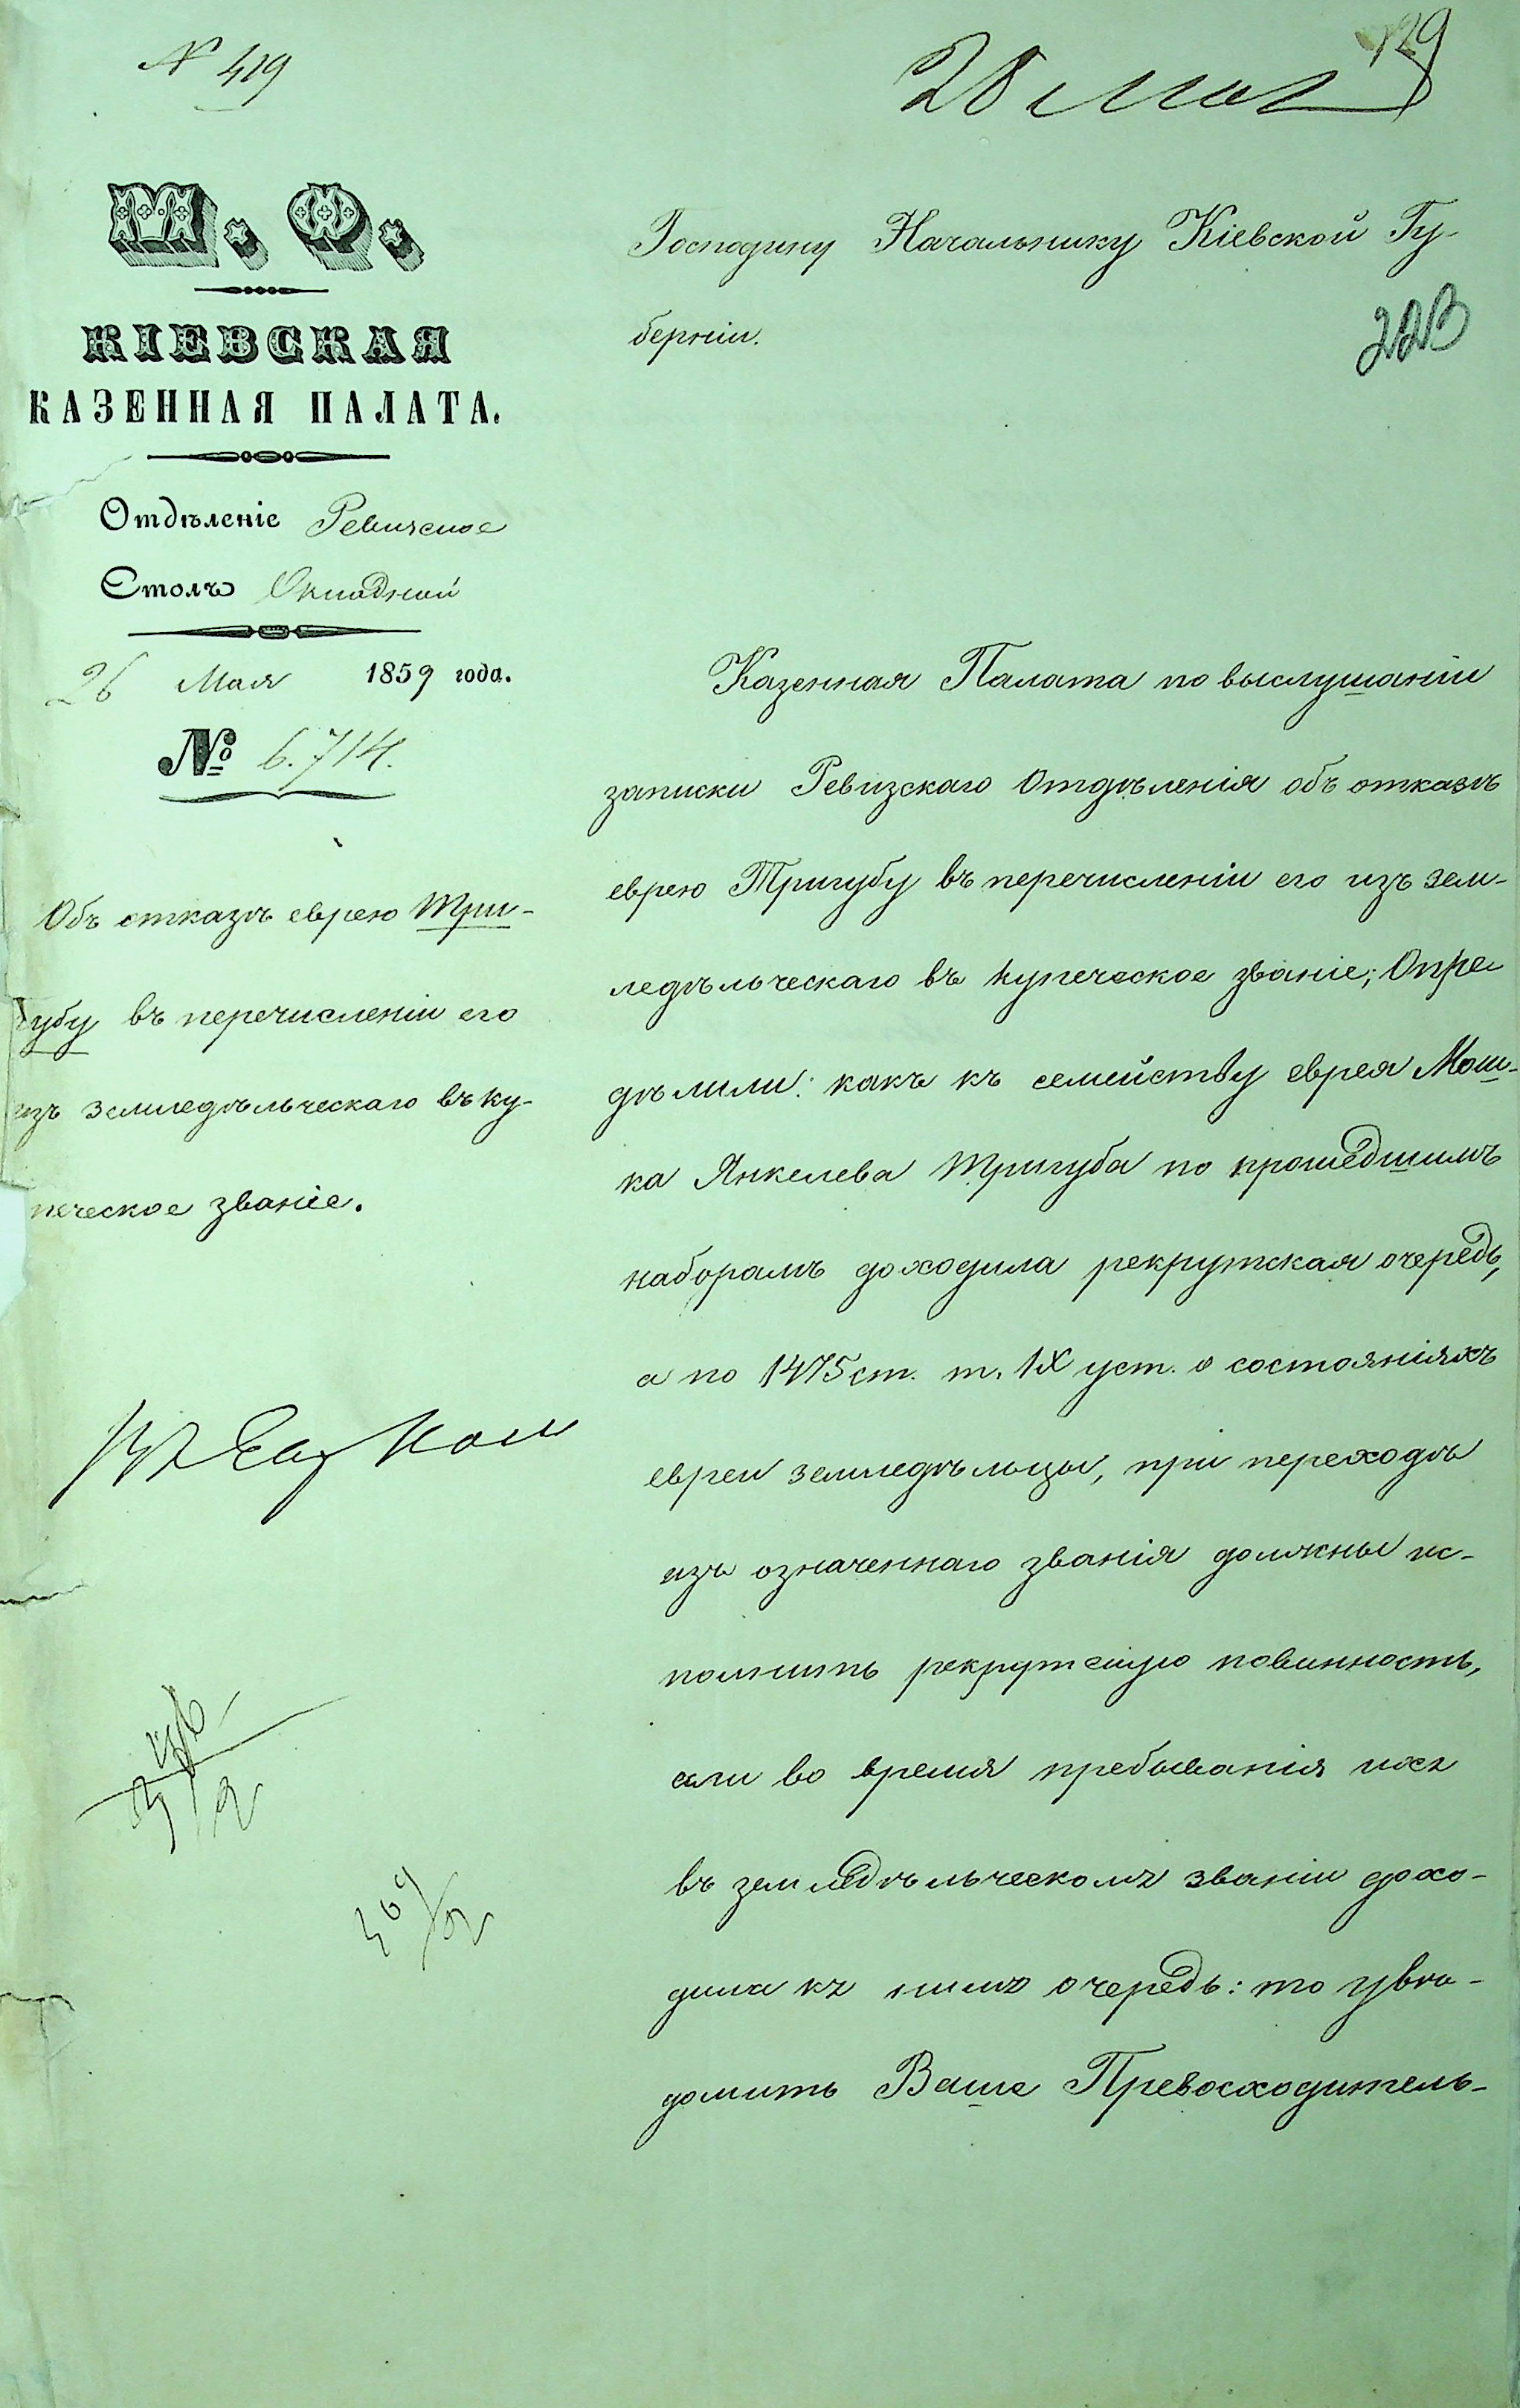 N 419
129
28 Мая
М. Ф.
КІЕВСКАЯ
КАЗЕННАЯ ПАЛАТА.
Отдѣленіе Ревизское
Столъ Окладной
26 Мая 1859 года.
№ 6.714.
Объ отказѣ еврею Три-
губу въ перечисленіи его
изъ земледѣльческаго въ ку-
печеское званіе.
Господину Начальнику Кіевской Гу-
берніи.
223
Казенная Палата по выслушаніи
записки Ревизскаго Отдѣленія объ отказѣ
еврею Тригубу въ перечисленіи его изъ зем-
ледѣльческаго въ купеческое званіе; Опре
дѣлили: какъ къ семейству еврея Мош-
ка Янкелева Тригуба по прошедшимъ
наборамъ доходила рекрутская очередь,
а по 1475 ст. т. IX уст. о состояніяхъ
евреи земледѣльцы, при переходѣ
изъ означеннаго званія должны ис-
полнить рекрутскую повинность,
если во время пребыванія ихъ
въ земледѣльческомъ званіи дохо-
дила къ нимъ очередь: то увѣ-
домить Ваше Превосходитель-